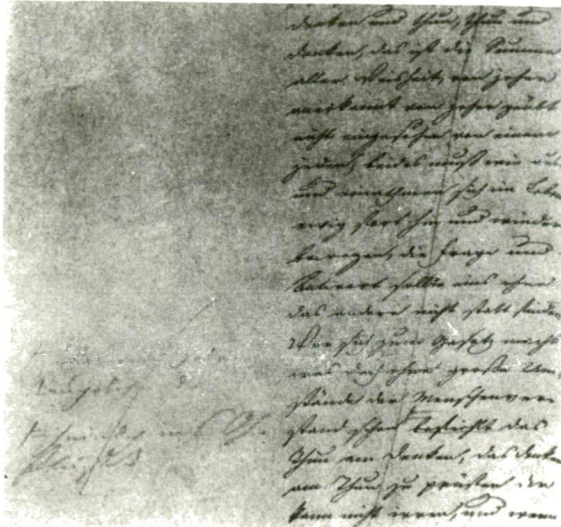 denken und thun, thun und
denken, das ist die Summe
aller Weisheit, von jeher
anerkannt von jeher geübt
nicht eingesehen von einem
jeden, beides muß wie aus
und einathmen sich im Leben
ewig fort hin und wieder
bewegen, die Frage und
Antwort sollte eins ohne
das andere nicht statt finden
Wer sich zum Gesetz macht
was doch ohne große Um¬
stände der Menschenver¬
stand schon befiehlt das
Thun am Denken, das Denken
am Thun zu prüfen der
kann nicht irren, und wenn
ins
flüstert